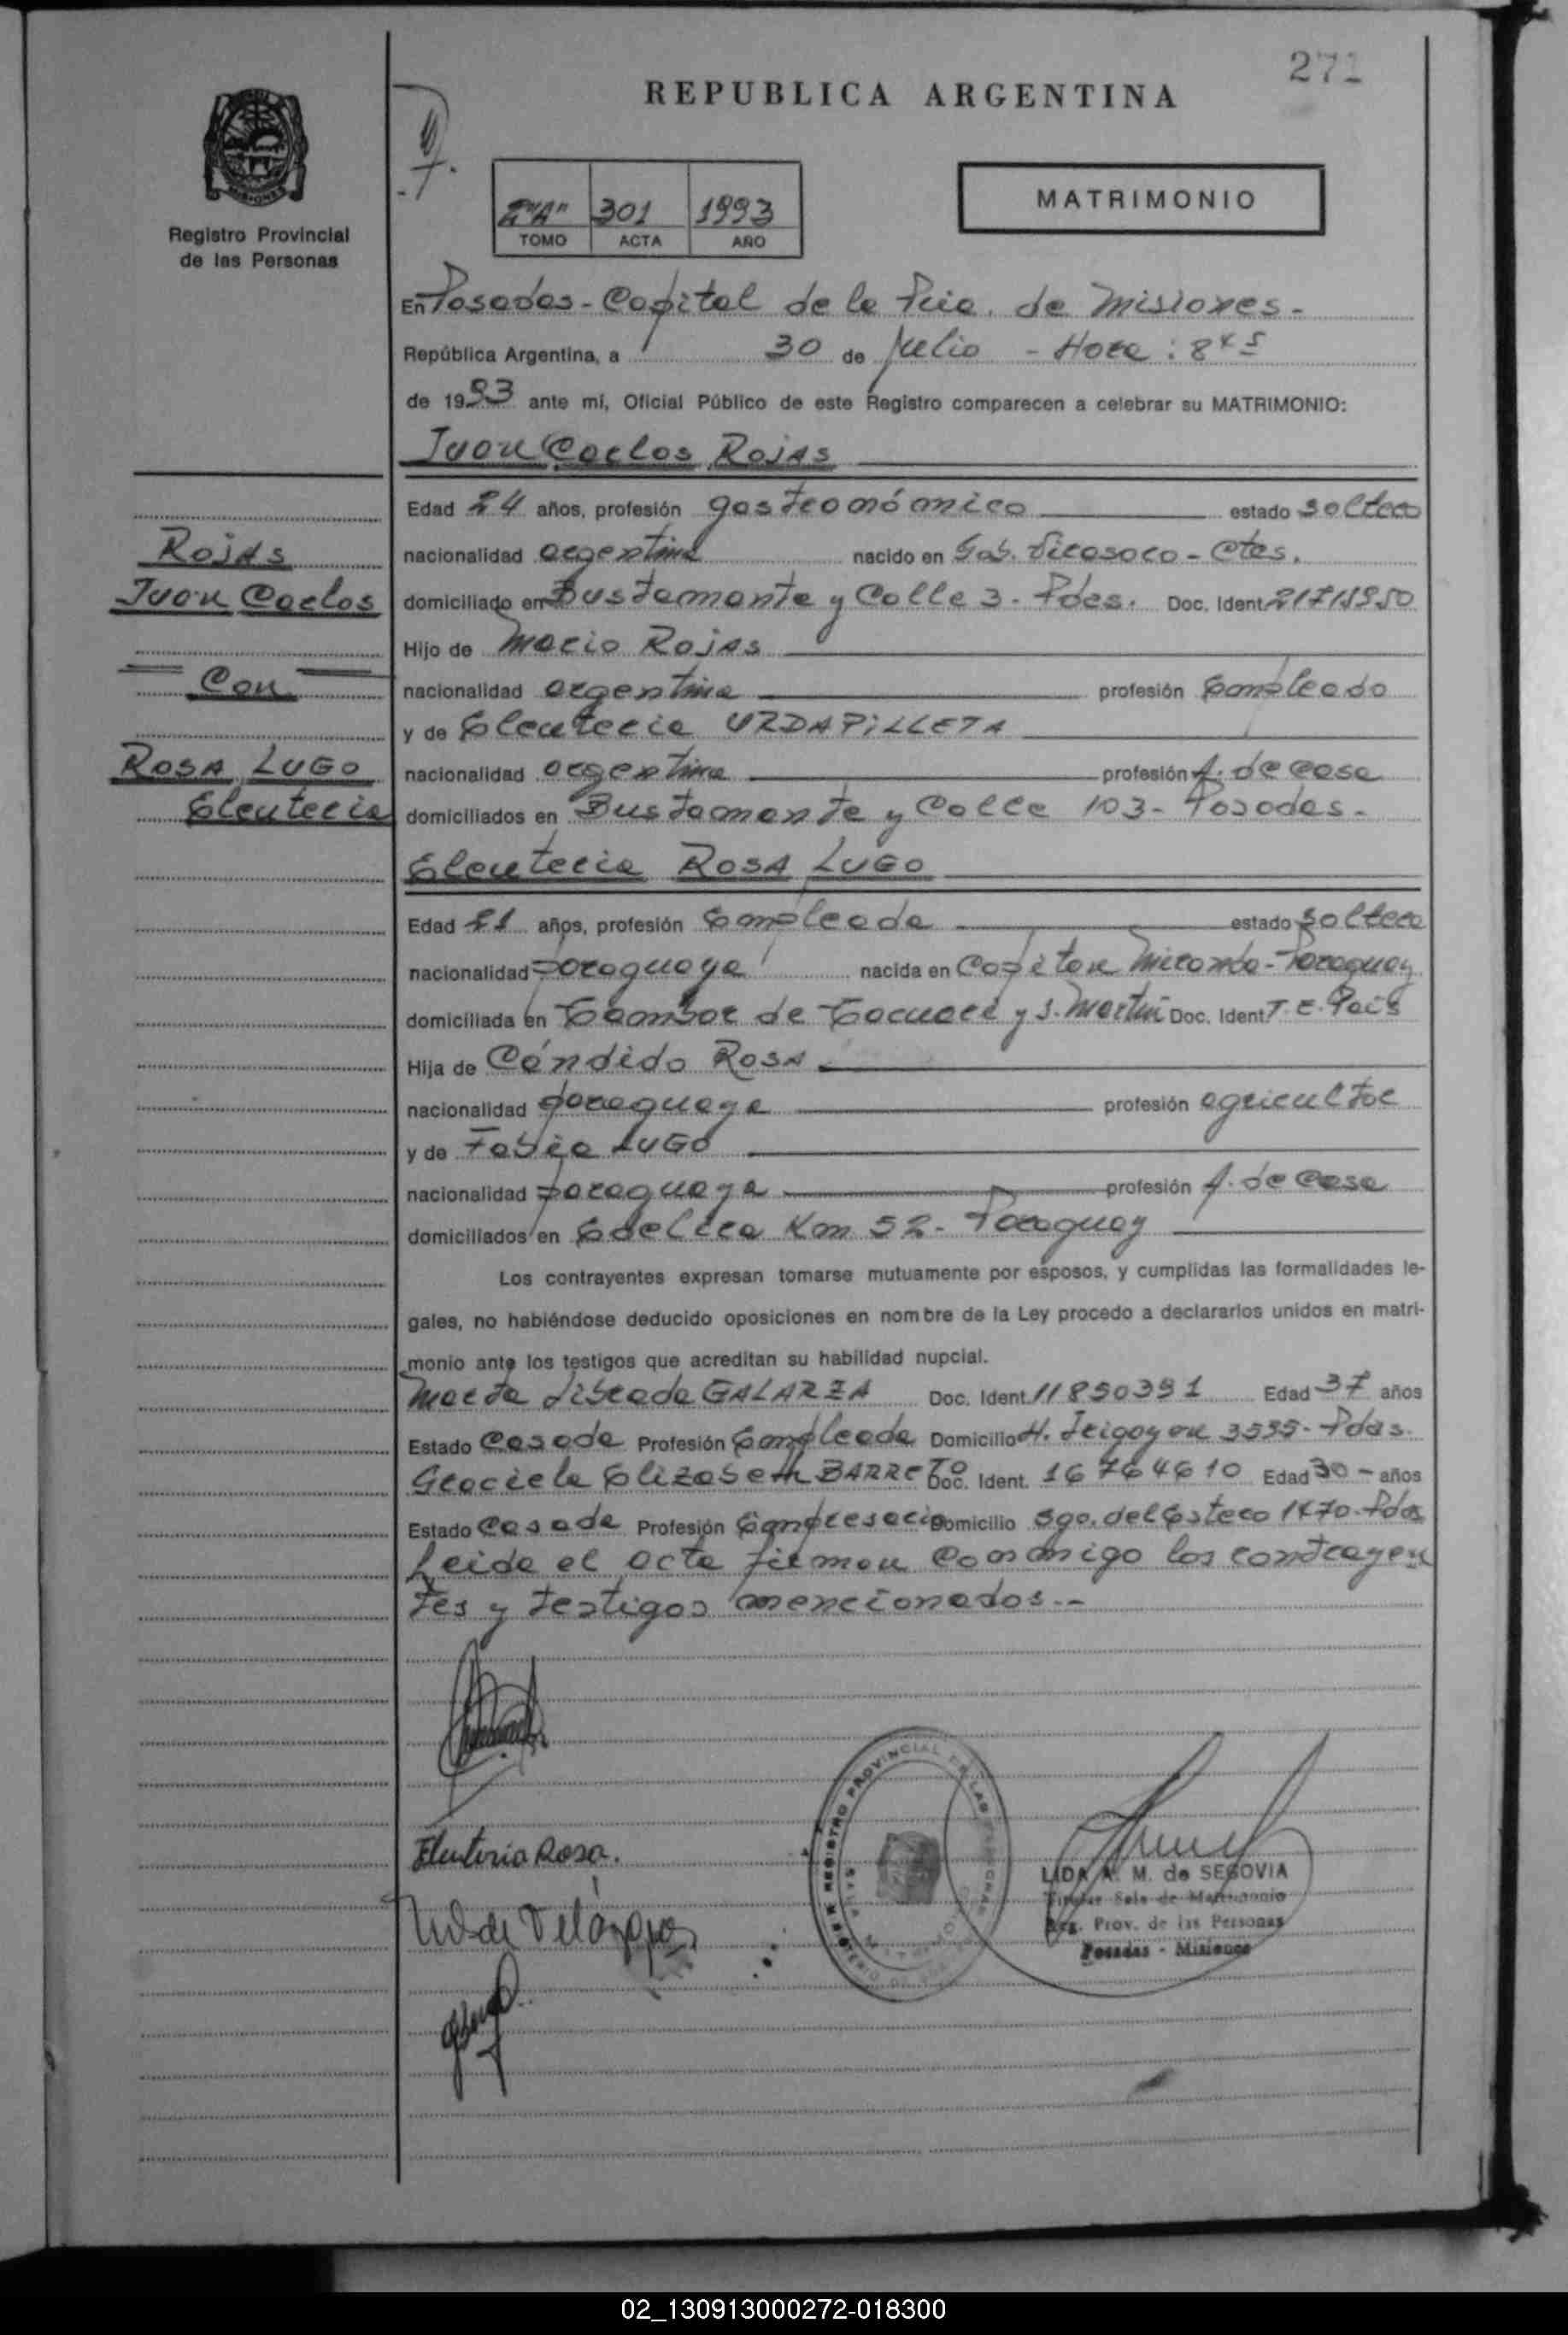 271
REPUBLICA ARGENTINA
MATRIMONIO
2"A" 301 1993
TOMO ACTA AÑO
Registro Provincial
de las Personas
En Posadas - Capital de la Pcia. de Misiones -
República Argentina, a 30 de Julio - Hora: 8 45
de 1993 ante mí, Oficial Público de este Registro comparecen a celebrar su MATRIMONIO:
Juan Carlos Rojas
Edad 24 años, profesión gastronómico estado soltero
Rojas
nacionalidad argentina nacido en Gob. Virasoro - Ctes.
Juan Carlos
domiciliado en Bustamante y Calle 3 - Pdas. Doc. Ident.
Hijo de Mario Rojas
Con
nacionalidad argentina profesión Empleado
y de Eleuteria URDAPILLETA
ROSA LUGO
nacionalidad argentina profesión A. de casa
Eleuteria
domiciliados en Bustamante y Calle 103 - Posadas -
Eleuteria ROSA LUGO
Edad 21 años, profesión Empleada estado soltera
nacionalidad paraguaya nacida en Capitan Miranda - Paraguay
domiciliada en Tambor de Tacuarí y S. Martín Doc. Ident. T. E. País
Hija de Cándido ROSA
nacionalidad paraguaya profesión agricultor
y de Fabia LUGO
nacionalidad paraguaya profesión A. de casa
domiciliados en Edelira Km 52 - Paraguay
Los contrayentes expresan tomarse mutuamente por esposos, y cumplidas las formalidades le-
gales, no habiéndose deducido oposiciones en nombre de la Ley procedo a declararlos unidos en matri-
monio ante los testigos que acreditan su habilidad nupcial.
Marta Librada GALARZA Doc. Ident. 11850391 Edad 37 años
Estado Casada Profesión Empleada Domicilio H. Irigoyen 3535 - Pdas.
Graciela Elizabeth BARRETO Doc. Ident. 16764610 Edad 30 - años
Estado Casada Profesión Empresaria Domicilio Sgo. del Estero 1470 - Pdas
Leida el acta firman conmigo los contrayen
tes y testigos mencionados.-
Eleuteria Rosa.
REGISTRO PROVINCIAL DE LAS PERSONAS
LIDA A. M. de SEGOVIA
Titular Sala de Matrimonio
Reg. Prov. de las Personas
Posadas - Misiones
02_130913000272-018300